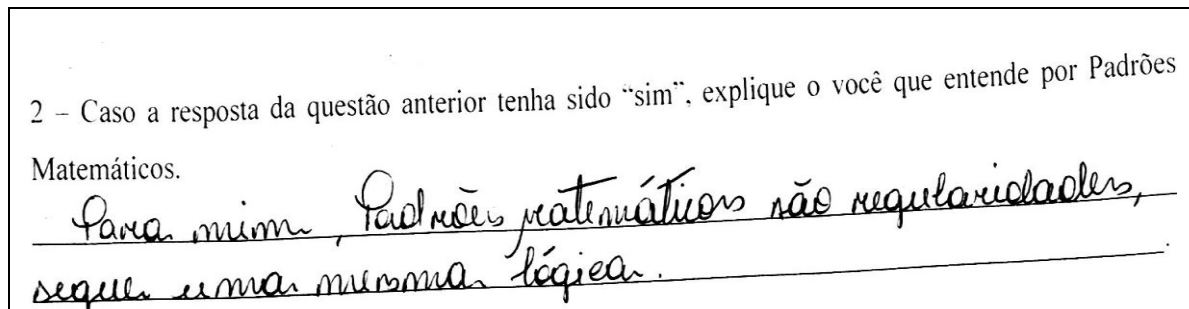 2 – Caso a resposta da questão anterior tenha sido “sim”, explique o você que entende por Padrões
Matemáticos.
Para mim, Padrões matemáticos são regularidades,
segue uma mesma lógica.